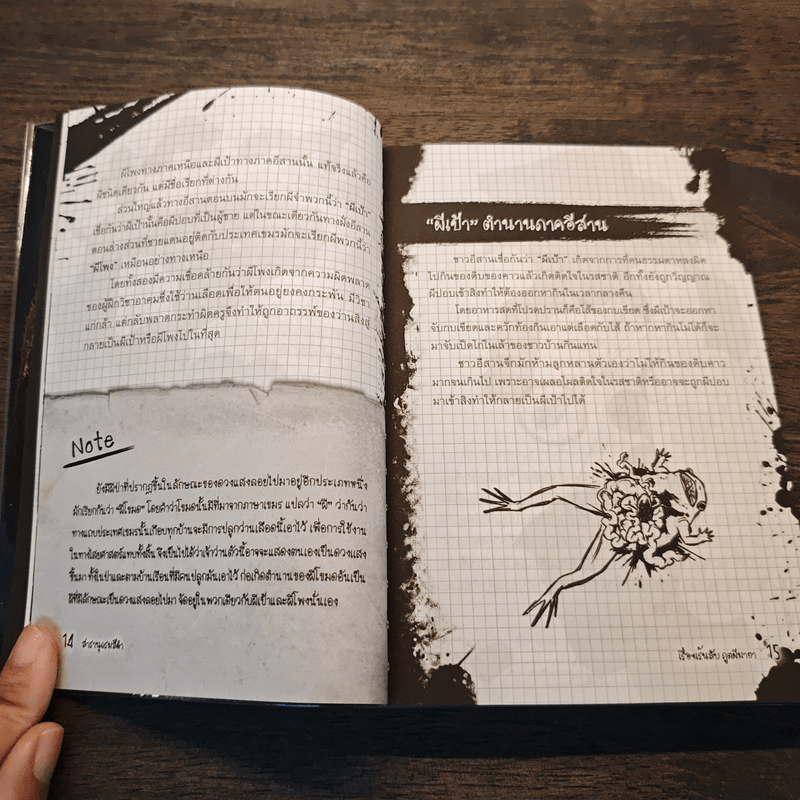 ผีโพงทางภาคเหนือและผีเป้าทางภาคอีสานนั้น แท้จริงแล้วคือ
ผีชนิดเดียวกัน แต่มีชื่อเรียกที่ต่างกัน
ส่วนใหญ่แล้วทางอีสานตอนบนมักจะเรียกผีจำพวกนี้ว่า "ผีเป้า"
เชื่อกันว่าผีเป้านั้นคือผีปอบที่เป็นผู้ชาย แต่ในขณะเดียวกันทางฝั่งอีสาน
ตอนล่างส่วนที่ชายแดนอยู่ติดกับประเทศเขมรมักจะเรียกผีพวกนี้ว่า
"ผีโพง" เหมือนอย่างทางเหนือ
โดยทั้งสองมีความเชื่อคล้ายกันว่าผีโพงเกิดจากความผิดพลาด
ของผู้ฝึกวิชาอาคมซึ่งใช้ว่านเลือดเพื่อให้ตนอยู่ยงคงกระพัน มีวิชา
แก่กล้า แต่กลับพลาดกระทำผิดครูจึงทำให้ถูกอาถรรพ์ของว่านสิงสู่
กลายเป็นผีเป้าหรือผีโพงไปในที่สุด
Note
ยังมีผีเป้าที่ปรากฏขึ้นในลักษณะของดวงแสงลอยไปมาอยู่อีกประเภทหนึ่ง
มักเรียกกันว่า "ผีโขมด" โดยคำว่าโขมดนั้นมีที่มาจากภาษาเขมร แปลว่า "ผี" ว่ากันว่า
ทางแถบประเทศเขมรนั้นเกือบทุกบ้านจะมีการปลูกว่านเลือดนี้เอาไว้ เพื่อการใช้งาน
ในทางไสยศาสตร์แทบทั้งสิ้น จึงเป็นไปได้ว่าเจ้าว่านตัวนี้อาจจะแสดงตนเองเป็นดวงแสง
ขึ้นมา ทั้งในป่าและตามบ้านเรือนที่มีคนปลูกมันเอาไว้ ก่อเกิดตำนานของผีโขมดอันเป็น
ผีที่มีลักษณะเป็นดวงแสงลอยไปมา จัดอยู่ในพวกเดียวกับผีเป้าและผีโพงนั่นเอง
14 สารานุแรมผีผ้า
"ผีเป้า" ตำนานภาคอีสาน
ชาวอีสานเชื่อกันว่า "ผีเป้า" เกิดจากการที่คนธรรมดาหลงผิด
ไปกินของดิบของคาวแล้วเกิดติดใจในรสชาติ อีกทั้งยังถูกวิญญาณ
ผีปอบเข้าสิงทำให้ต้องออกหากินในเวลากลางคืน
โดยอาหารสดที่โปรดปรานก็คือไส้ของกบเขียด ซึ่งผีเป้าจะออกหา
จับกบเขียดและควักท้องกินเอาแต่เลือดกับไส้ ถ้าหากหากินไม่ได้ก็จะ
มาจับเป็ดไก่ในเล้าของชาวบ้านกินแทน
ชาวอีสานจึงมักห้ามลูกหลานตัวเองว่าไม่ให้กินของดิบคาว
มากจนเกินไป เพราะอาจเผลอไผลติดใจในรสชาติหรืออาจจะถูกผีปอบ
มาเข้าสิงทำให้กลายเป็นผีเป้าไปได้
เรื่องเร้นลับ ภูตผีพาอา 15